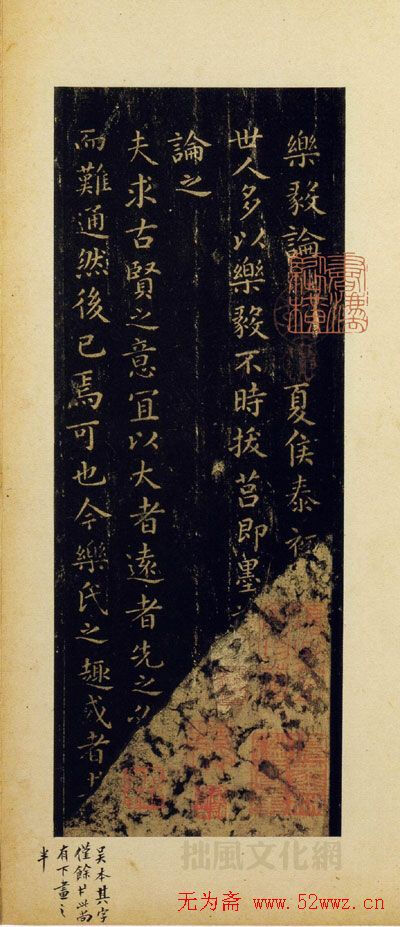 樂毅論 夏侯泰
世人多以樂毅不時拔莒即墨
論之
夫求古賢之意宜以大者遠者先之必
而難通然後已焉可也今樂氏之趣或者
吴本其字
僅餘 此尚
有下畫之
半
拙風文化網
无为斋 www.52wwz.cn